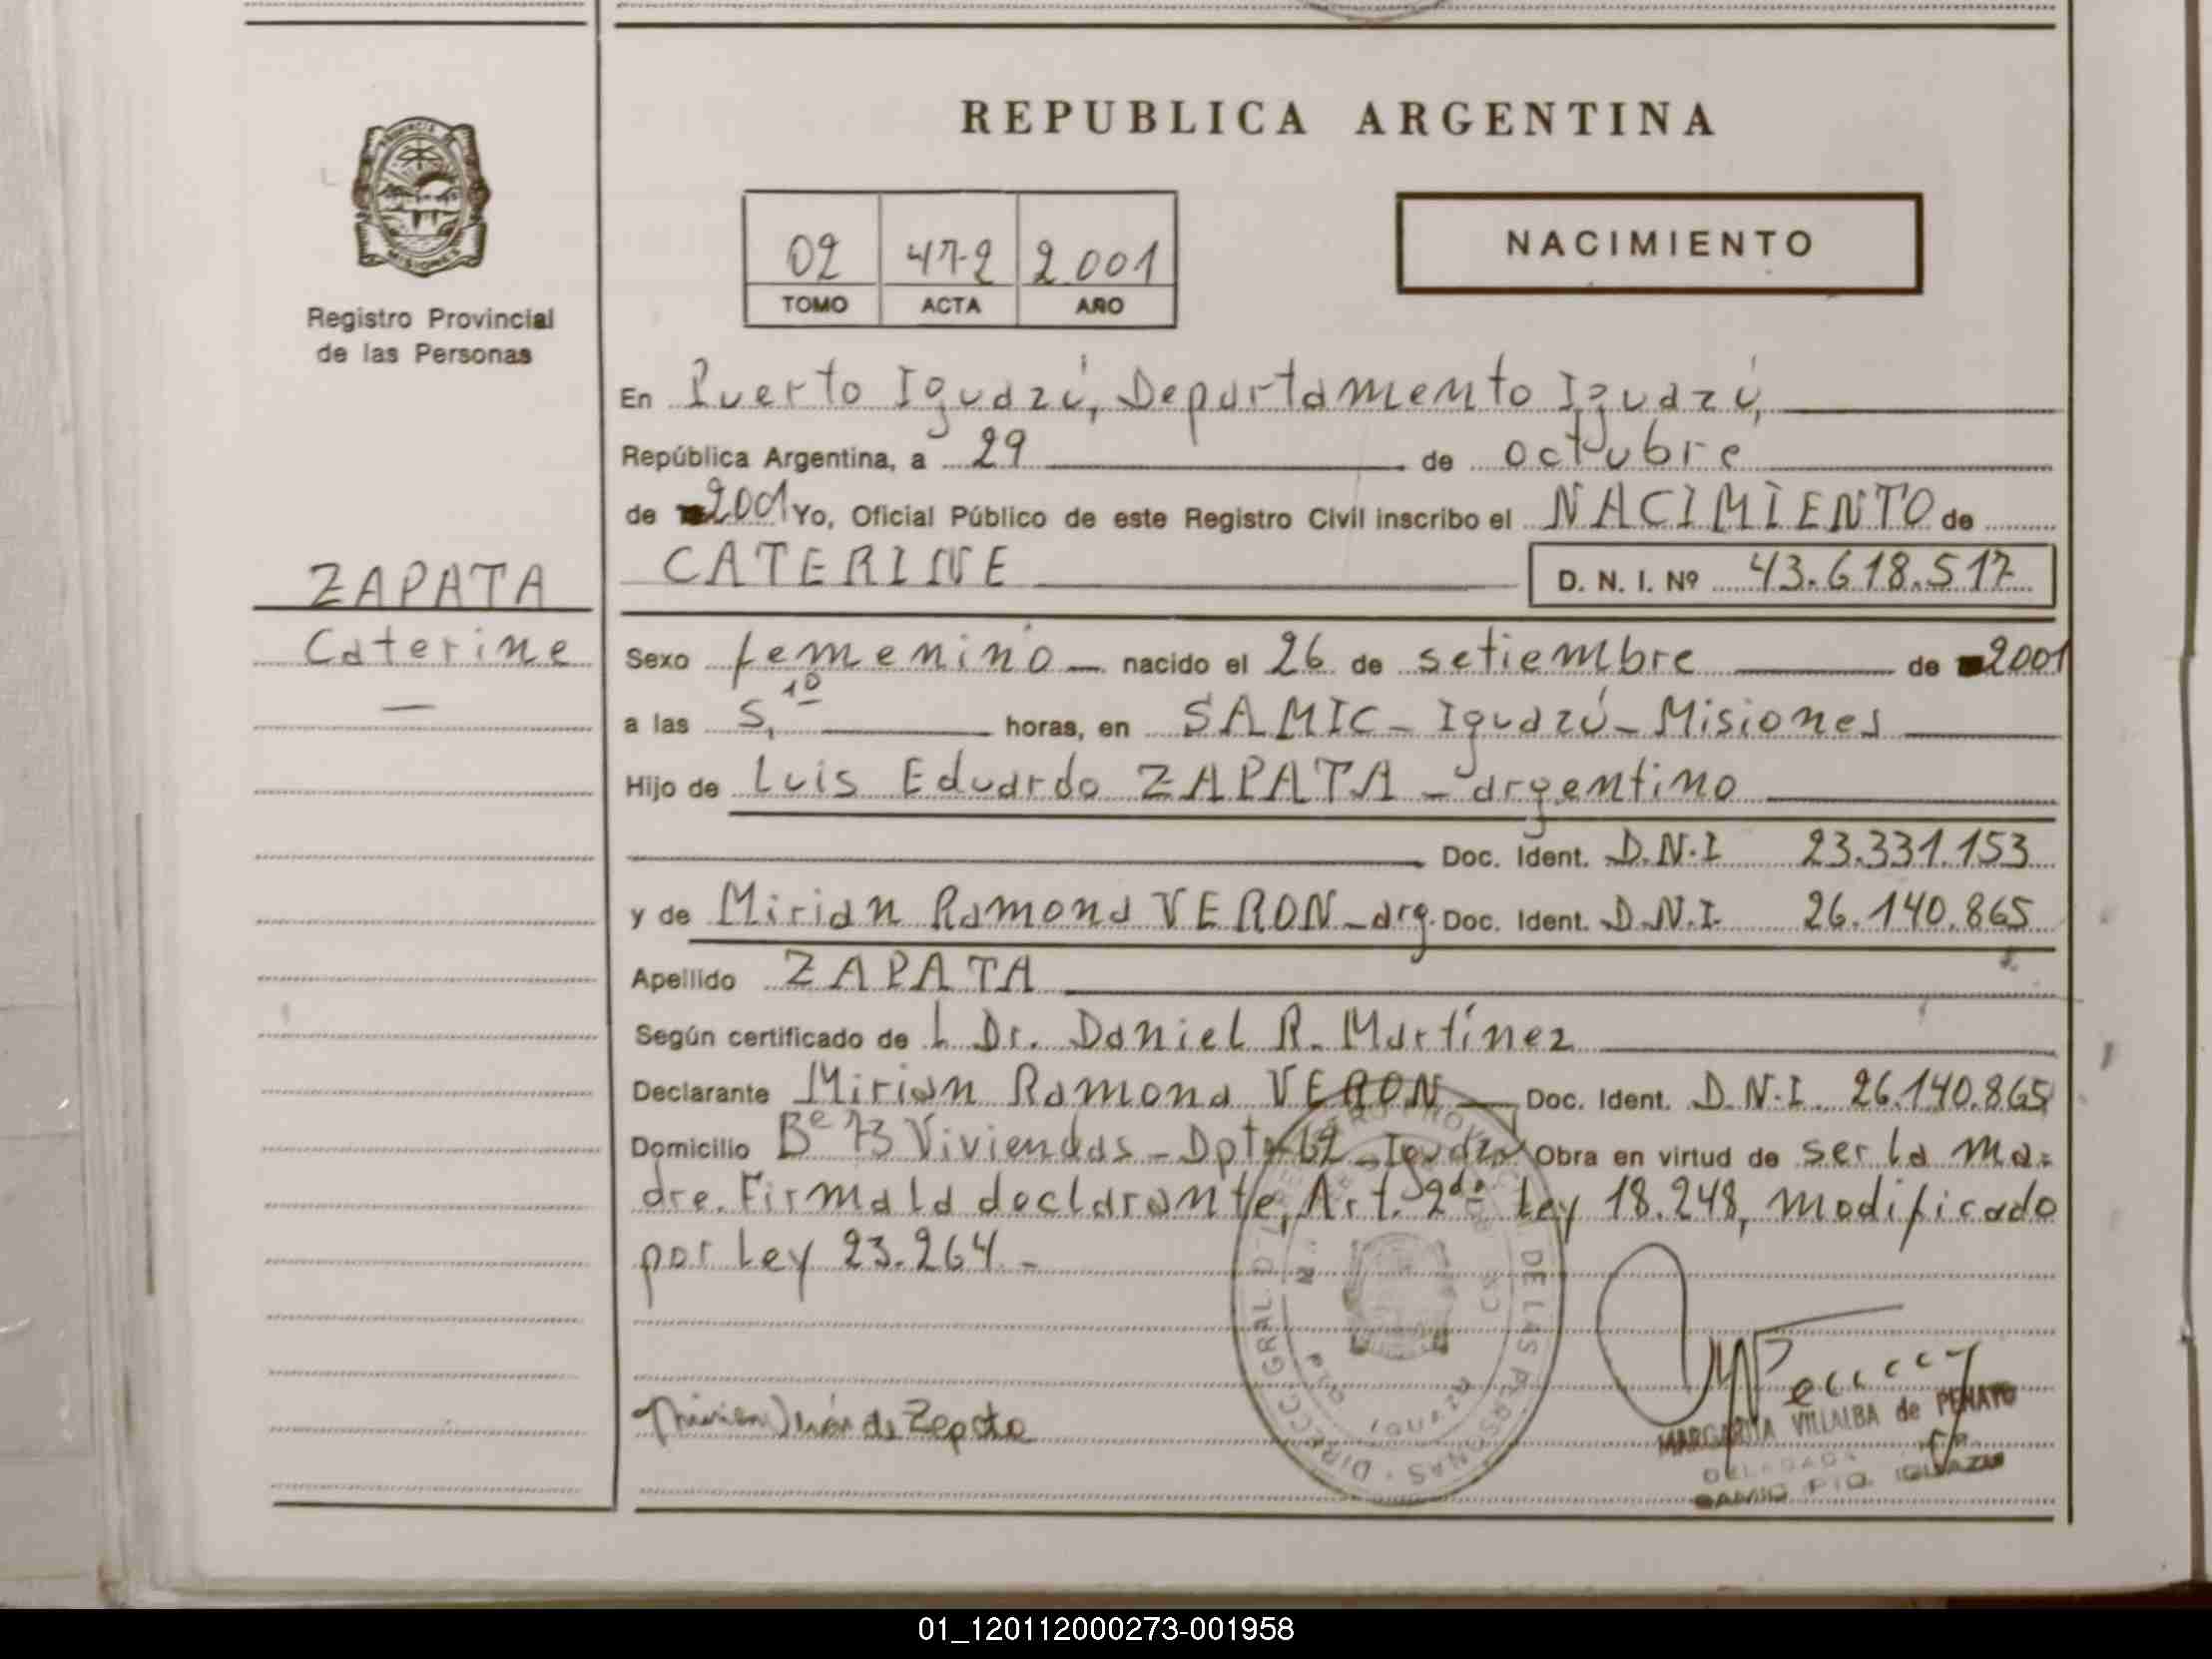 REPUBLICA ARGENTINA
PROVINCIA DE MISIONES
Registro Provincial
de las Personas
02 472 2.001
TOMO ACTA AÑO
NACIMIENTO
En Puerto Iguazú, Departamento Iguazú,
República Argentina, a 29 de octubre
de 2001 Yo, Oficial Público de este Registro Civil inscribo el NACIMIENTO de
CATERINE D. N. I. Nº 43.618.517
ZAPATA
Caterine
Sexo femenino nacido el 26 de setiembre de 2001
a las 5,10 horas, en SAMIC - Iguazú - Misiones
Hijo de Luis Eduardo ZAPATA - argentino
Doc. Ident. D.N.I 23.331.153
y de Mirian Ramona VERON - arg. Doc. Ident. D.N.I. 26.140.865
Apellido ZAPATA
Según certificado de L Dr. Daniel R. Martínez
Declarante Mirian Ramona VERON Doc. Ident. D.N.I. 26.140.865
Domicilio Bº 73 Viviendas - Dpto 62 - Iguazú Obra en virtud de ser la ma=
dre. Firma la declarante, Art. 2do Ley 18.248, modificado
por Ley 23.264 -
DIRECC. GRAL. DE LAS PERSONAS
MARGARITA VILLALBA de PENAYO
DELEGADA
SAMIC PTO. IGUAZU
01_120112000273-001958